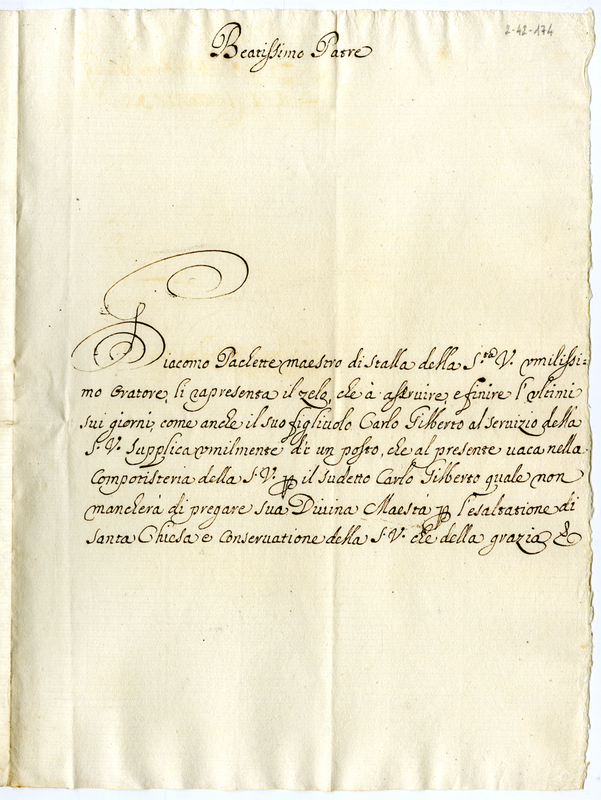 2-42-174
Beatissimo Padre
Giacomo Pachette maestro di stalla della S.tà V. umilissi=
mo Oratore, li rapresenta il zelo, che à a servire, e finire l'ultimi
sui giorni, come anche il suo figliuolo Carlo Gilberto al servizio della
S. V. Supplica umilmente di un posto, che al presente vaca nella
Compotisteria della S. V. il sudetto Carlo Gilberto quale non
mancherà di pregare sua Divina Maestà l'esaltatione di
santa Chiesa e Conservatione della S. V. che della grazia &